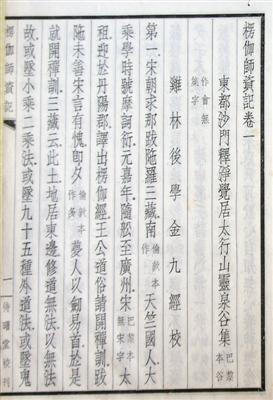 楞伽師資記卷一
東都沙門釋淨覺居太行山靈泉谷集巴黎本谷
作會無集字
雞林後學金九經校
第一宋朝求那跋陀羅三藏南作天竺國人大
乘學時號摩訶衍元嘉年隨舩至廣州宋太
祖迎於丹陽郡譯出楞伽經王公道俗請開禪訓跋
陀未善宋言有愧即夕夢人以劒易首於是
就開禪訓三藏云此土地居東邊修道無法以無
故或墜小乘二乘法或墜九十五種外道法或墜鬼
楞伽師資記
一
校刊